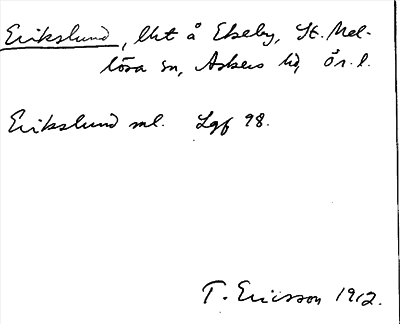 Erikslund, lht å Ekeby, St. Mel-
lösa sn, Askers hd, Ör. l.
Erikslund ml. Lgf 98.
T. Ericsson 1912.